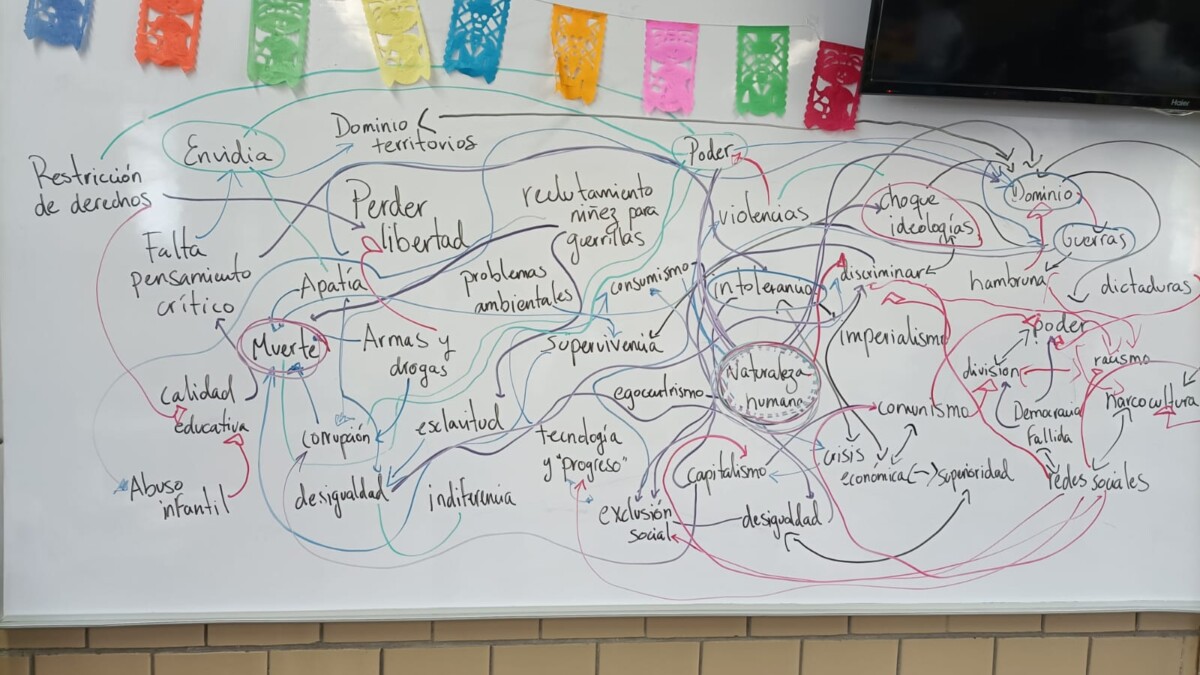 Haier
Restricción
de derechos
Envidia
Dominio
territorios
Poder
Dominio
Guerras
Falta
pensamiento
crítico
Perder
libertad
reclutamiento
niñez para
guerrillas
violencias
choque
ideologías
Apatía
problemas
ambientales
consumismo
intolerancia
discriminar
hambruna
dictaduras
Muerte
Armas y
drogas
Supervivencia
Naturaleza
humana
imperialismo
poder
división
racismo
narcocultura
calidad
educativa
egocentrismo
comunismo
Democracia
fallida
corrupción
esclavitud
tecnología
y "progreso"
capitalismo
crisis
económica
superioridad
redes sociales
Abuso
infantil
desigualdad
indiferencia
exclusión
social
desigualdad